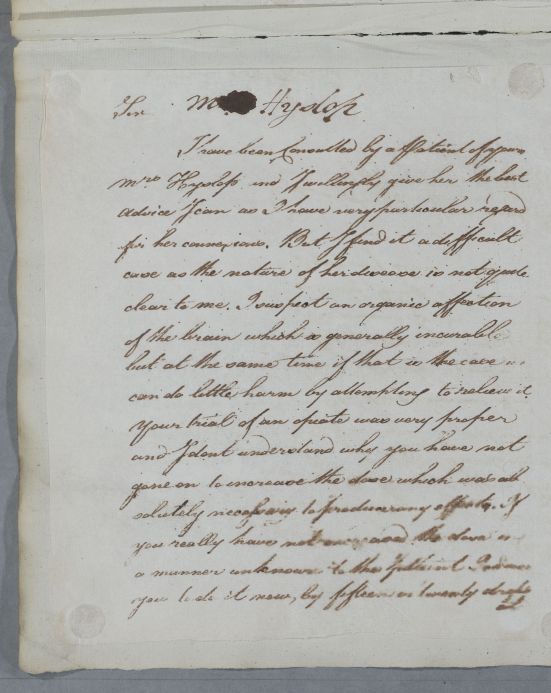 Sir Mrs Hyslop
I have been Consulted by a Patient of yours
Mrs Hyslop and I willingly give her the best
advice I can as I have very particular regard
for her connexions. But I find it a difficult
case as the nature of her disease is not quite
clear to me. I suspect an organic affection
of the brain which is generally incurable
but at the same time if that is the case we
can do little harm by attempting to relieve it.
Your trial of an opiate was very proper
and I dont understand why you have not
gone on to increase the dose which was ab
solutely necessary to produce any effects. If
you really have not encreased the doses in
a manner unknown to the Patient I advise
you to do it now, by fifteen or twenty drops